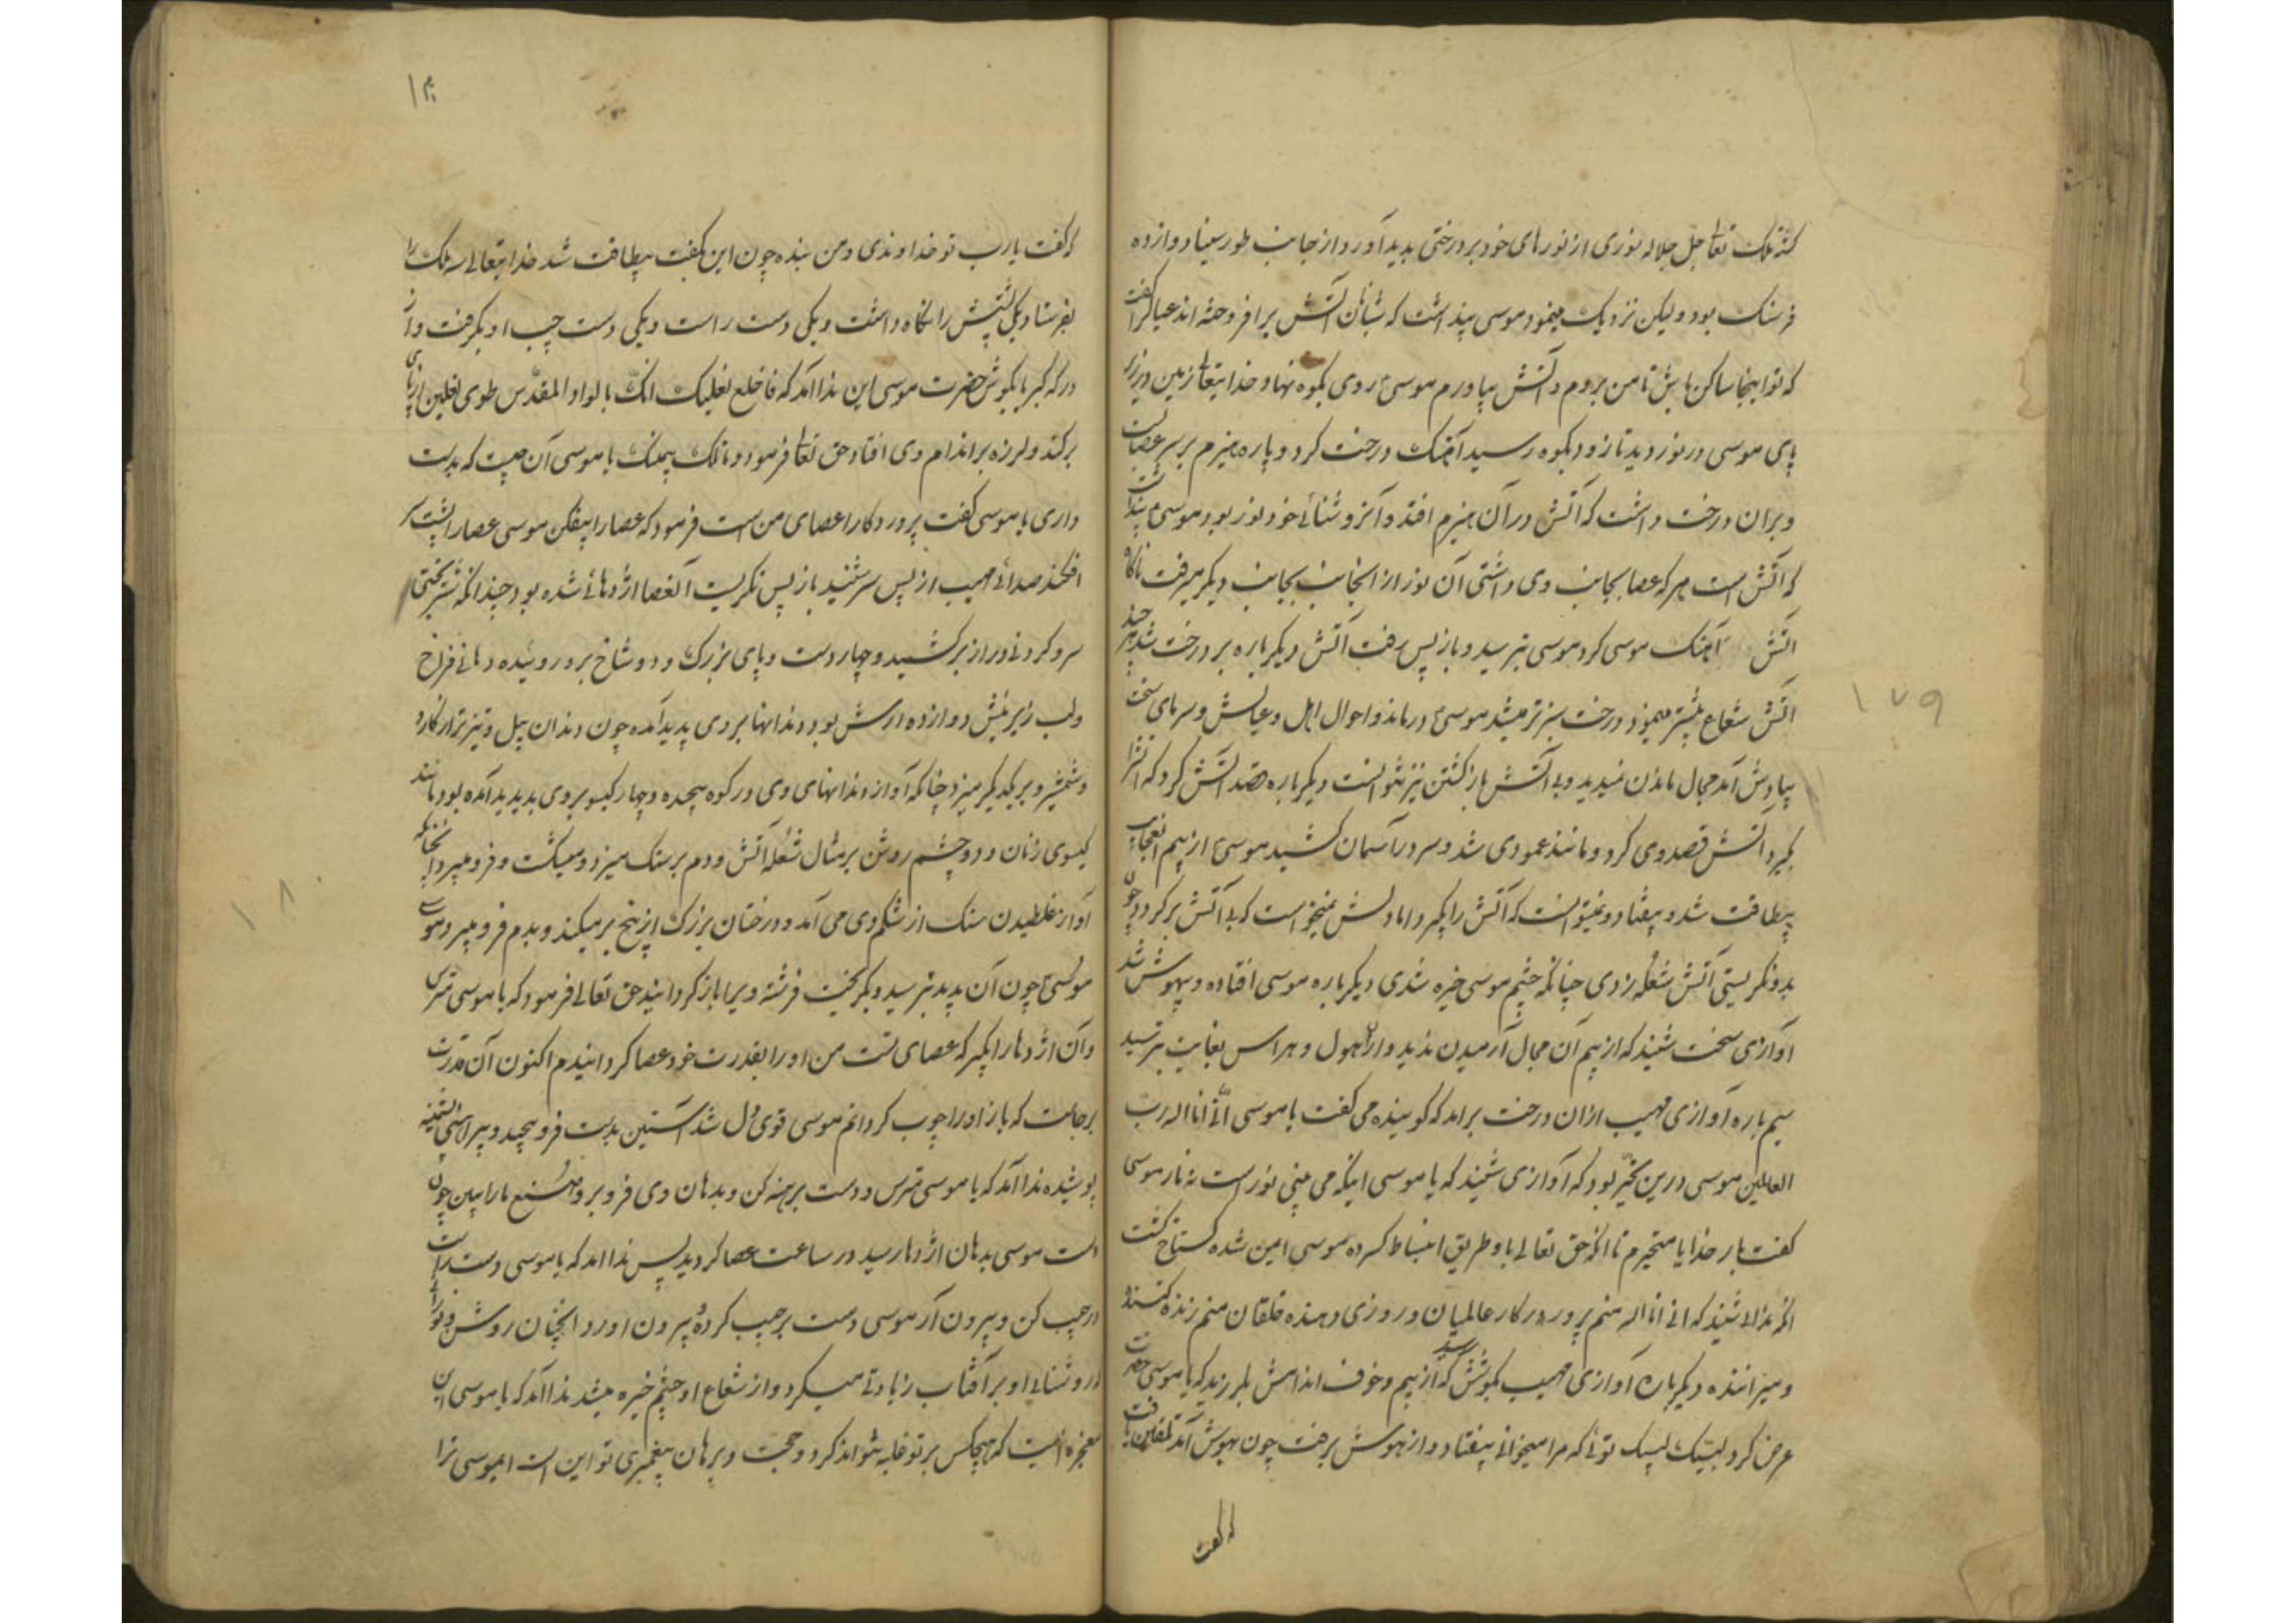 تعا جل جلاله نوری از نورهای خود بر درختی بدید آورد از جانب طور سینا دوازده
فرسنک بود ولیکن نزدیک مینمود موسی پنداشت که شبانان آتش برافروخته اند عیال را گفت
که تو اینجا ساکن باش تا من بروم و آتش بیاورم موسیٰ روی بکوه نهاد و خدایتعا زمین در زیر
پای موسی در نوردید تا زود بکوه رسید آهنک درخت کرد و پاره هیزم بر سر عصا بست
و بران درخت داشت که آتش در آن هیزم افتد و آنروشنائی خود نور بود موسیٰ پنداشت
که آتش است هرکه عصا بجانب وی داشتی آن نور از انجانب بجانب دیکر میرفت ناکاه
آتش آهنک موسی کرد موسی بترسید و باز پس رفت آتش دیکر باره بر درخت شد هر چند
آتش شعاع بیشتر مینمود درخت سبزتر میشد موسیٰ درماند و احوال اهل و عیالش و سرمای سخت
بیادش آمد مجال ماندن ندید و بی آتش باز کشتن نیز نتوانست دیکر باره قصد آتش کرد که آتش را
بکیرد آتش قصد وی کرد و مانند عمودی شد و سر در آسمان کشید موسیٰ از بیم آنعجایب
بیطاقت شد و بیفتاد و نمیتوانست که آتش را بکیرد اما دلش نمیخواست که بی آتش برکردد چون
بدو نکریستی آتش شعله زدی چنانکه چشم موسی خیره شدی دیکر باره موسی افتاده و بیهوش شد
آوازی سخت شنید که از بیم آن مجال آرمیدن ندید و از آن هول و هراس بغایت بترسید
سیم باره آوازی مهیب از آن درخت برآمد که کوینده می کفت یا موسی انی انا اله رب
العالمین موسی درین تحیر بود که آوازی شنید که یا موسی اینکه می بینی نور است نه نار موسی
کفت بار خدایا متحیرم تا آنکه حق تعالی با او طریق انبساط کرده موسی امین شده کستاخ کشت
آنکه ندائی شنید که انی انا اله منم پروردکار عالمیان و روزی دهنده خلقان منم زنده کننده
و میراننده دیکر باره آوازی مهیب بکوشش رسید که از بیم و خوف اندامش بلرزید که یا موسی
عرض کرد لبیک لبیک توئی که مرا میخوانی بیفتاد و از هوش برفت چون بهوش آمد تلقین یافت
که کفت
۱۷۹
که کفت یارب تو خداوندی و من بنده چون این بکفت بیطاقت شد خدایتعالی سه ملک را
بفرستاد یکی پشتش را نکاه داشت و یکی دست راست و یکی دست چپ او بکرفت و از
درکه کبریا بکوش حضرت موسی این ندا آمد که فاخلع نعلیک انک بالواد المقدس طوی نعلین از پای
برکند و لرزه بر اندام وی افتاد حق تعا فرمود و ما تلک بیمینک یا موسی آن چیست که بدست
داری یا موسی کفت پروردکارا عصای من است فرمود که عصا را بیفکن موسی عصا را پشت سر
افکند صدائی مهیب از پس سر شنید باز پس نکریست آنعصا اژدهائی شده بود چندانکه شتر بختی
سر و کردنی دراز برکشید و چهار دست و پای بزرک و دو شاخ برو روئیده دهانی فراخ
ولب زیرینش دوازده ارش بود و دندانها بر وی پدید آمده چون دندان پیل و تیزتر از کارد
و شمشیر و بر یکدیکر میزد چنانکه آواز دندانهای وی در کوه پیچیده و چهار کیسو بر وی پدید آمده بود مانند
کیسوی زنان و دو چشم روشن بر مثال شعله آتش و دم بر سنک میزد و میکشت و فرو میبرد چنانکه
آواز غلطیدن سنک از شکم وی می آمد و درختان بزرک از بیخ بر میکند و بدم فرو میبرد
موسیٰ چون آن بدید بترسید و بکریخت فرشته ویرا باز کردانید حق تعالی فرمود که یا موسی مترس
و آن اژدها را بکیر که عصای تست من او را بقدرت خود عصا کردانیدم اکنون آن قدرت
برجاست که باز او را چوب کردانم موسی قوی دل شد آستین بدست فرو پیچید و پیراهنی پشمینه
پوشیده ندا آمد که یا موسی مترس و دست برهنه کن و بدهان وی فرو بر و صنع ما را ببین چون
دست موسی بدهان اژدها رسید در ساعت عصا کردید پس ندا آمد که یا موسی دست راست
در جیب کن و بیرون آر موسی دست بر جیب کرده بیرون آورد آنچنان روشن و نورانی
که روشنائی او بر آفتاب زیادتی میکرد و از شعاع او چشم خیره میشد ندا آمد که یا موسی این
معجزه ایست که هیچکس بر تو غلبه نتواند کرد و حجت و برهان پیغمبری تو این است ایموسی ترا
۱۸۰